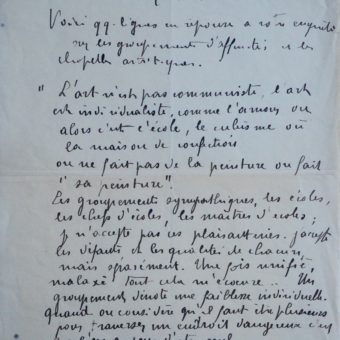 Voici qq. lignes en réponse a votre enquête
sur les groupements d'affinités et les
chapelles artistiques.
"L'art n'est pas communiste, l'art
est individualiste, comme l'amour ou
alors c'est l'école, le cubisme ou
la maison de confections
on ne fait pas de la peinture on fait
"sa peinture".
Les groupements sympathiques, les écoles,
les chefs d'écoles, les maîtres d'écoles;
je n'accepte pas ces plaisanteries. j'accepte
les défauts et les qualités de chacun,
mais séparément. Une fois unifié,
malaxé tout cela m'écoeure... Un
groupement dénote une faiblesse individuelle.
Quand on considère qu'il faut être plusieurs
pour traverser un endroit dangereux c'est